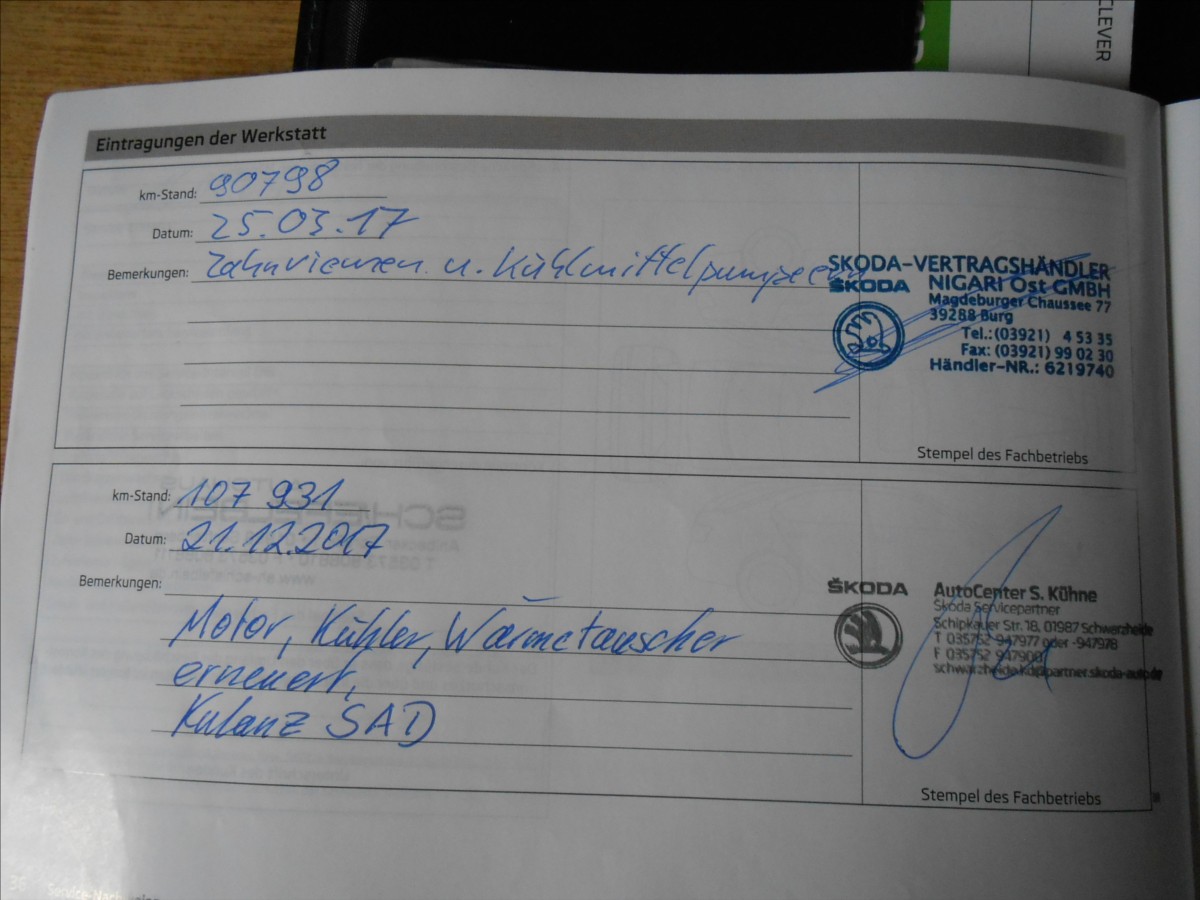 CLEVER
Eintragungen der Werkstatt
km-Stand: 90798
Datum: 25.03.17
Bemerkungen: Zahnriemen u. Kühlmittelpumpe
SKODA-VERTRAGSHÄNDLER
ŠKODA NIGARI Ost GMBH
Magdeburger Chaussee 77
39288 Burg
Tel.: (03921) 4 53 35
Fax: (03921) 99 02 30
Händler-NR.: 6219740
Stempel des Fachbetriebs
km-Stand: 107 931
Datum: 21.12.2017
Bemerkungen:
Motor, Kühler, Wärmetauscher
erneuert,
Kulanz SAD
ŠKODA AutoCenter S. Kühne
Skoda Servicepartner
Schipkauer Str. 18, 01987 Schwarzheide
T 035752 947977 oder -947978
F 035752
schwarzheide.kd@partner.skoda-auto.de
Stempel des Fachbetriebs
36